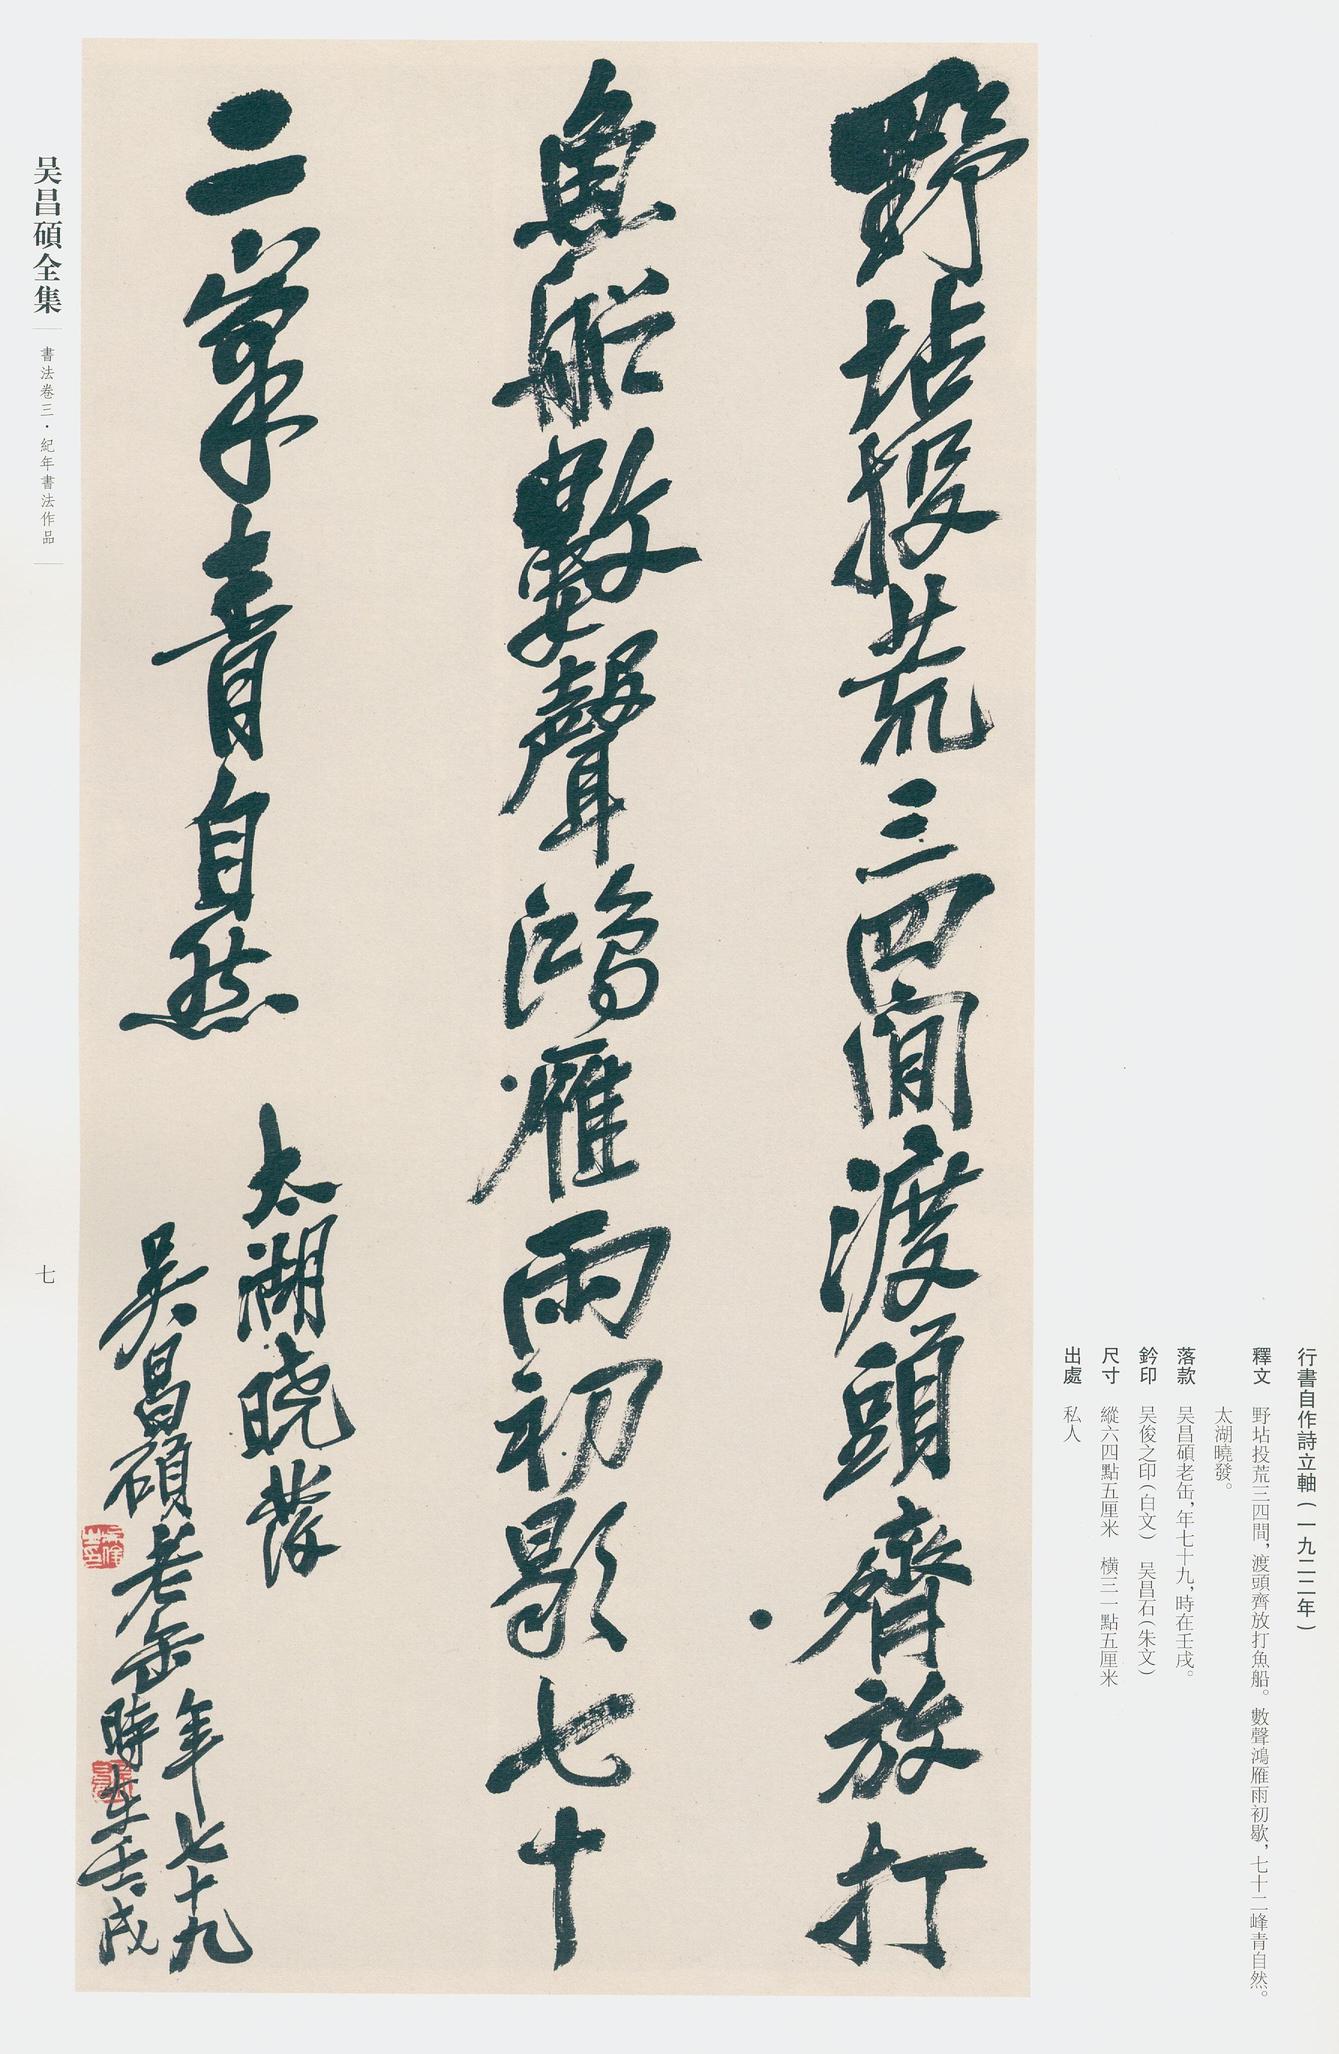 行書自作詩立軸（一九二二年）
釋文　野坫投荒三四間，渡頭齊放打魚船。數聲鴻雁雨初歇，七十二峰青自然。
太湖曉發。
落款　吴昌碩老缶，年七十九，時在壬戌。
鈐印　吴俊之印（白文）　吴昌石（朱文）
尺寸　縱六四點五厘米　橫三一點五厘米
出處　私人
野坫投荒三四間渡頭齊放打
魚船數聲鴻雁雨初歇七十
二峯青自然
太湖曉發
吳昌碩老缶年七十九
時在壬戌
吴昌碩全集
書法卷三·紀年書法作品
七